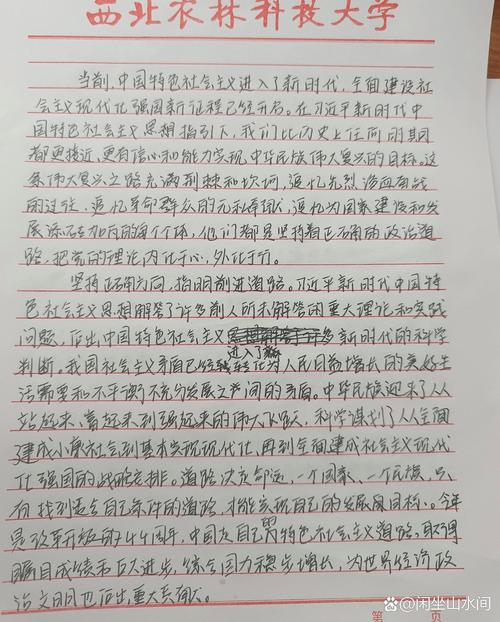 西北农林科技大学
当前,中国特色社会主义进入了新时代,全面建设社
会主义现代化强国新征程已经开启。在习近平新时代中
国特色社会主义思想指引下,我们比历史上任何时期
都更接近,更有信心和能力实现中华民族伟大复兴的目标。这
条伟大复兴之路充满荆棘和坎坷,追忆先烈浴血奋战
的过往,追忆革命群众的无私奉献,追忆为国家建设和发
展添砖加瓦的每个个体,他们都是坚持着正确的政治道
路,把党的理论内化于心,外化于行。
坚持正确方向,指明前进道路。习近平新时代中国特
色社会主义思想解答了许多前人所未解答的重大理论和实践
问题,作出中国特色社会主义新时代的科学
进入了新
判断。我国社会主义矛盾已经转化为人民日益增长的美好生
活需要和不平衡不充分发展之间的矛盾。中华民族迎来了从
站起来、富起来到强起来的伟大飞跃,科学谋划了从全面
建成小康社会到基本实现现代化,再到全面建成社会主义现代
化强国的战略安排。道路决定命运,一个国家、一个民族,只
有找到适合自己条件的道路,才能实现自己的发展目标。今年
是改革开放的44周年,中国在自己的特色社会主义道路,取得
瞩目成绩和巨大进步,综合国力稳步增长,为世界经济政
治文明也作出重大贡献。
第 页
@闲坐山水间